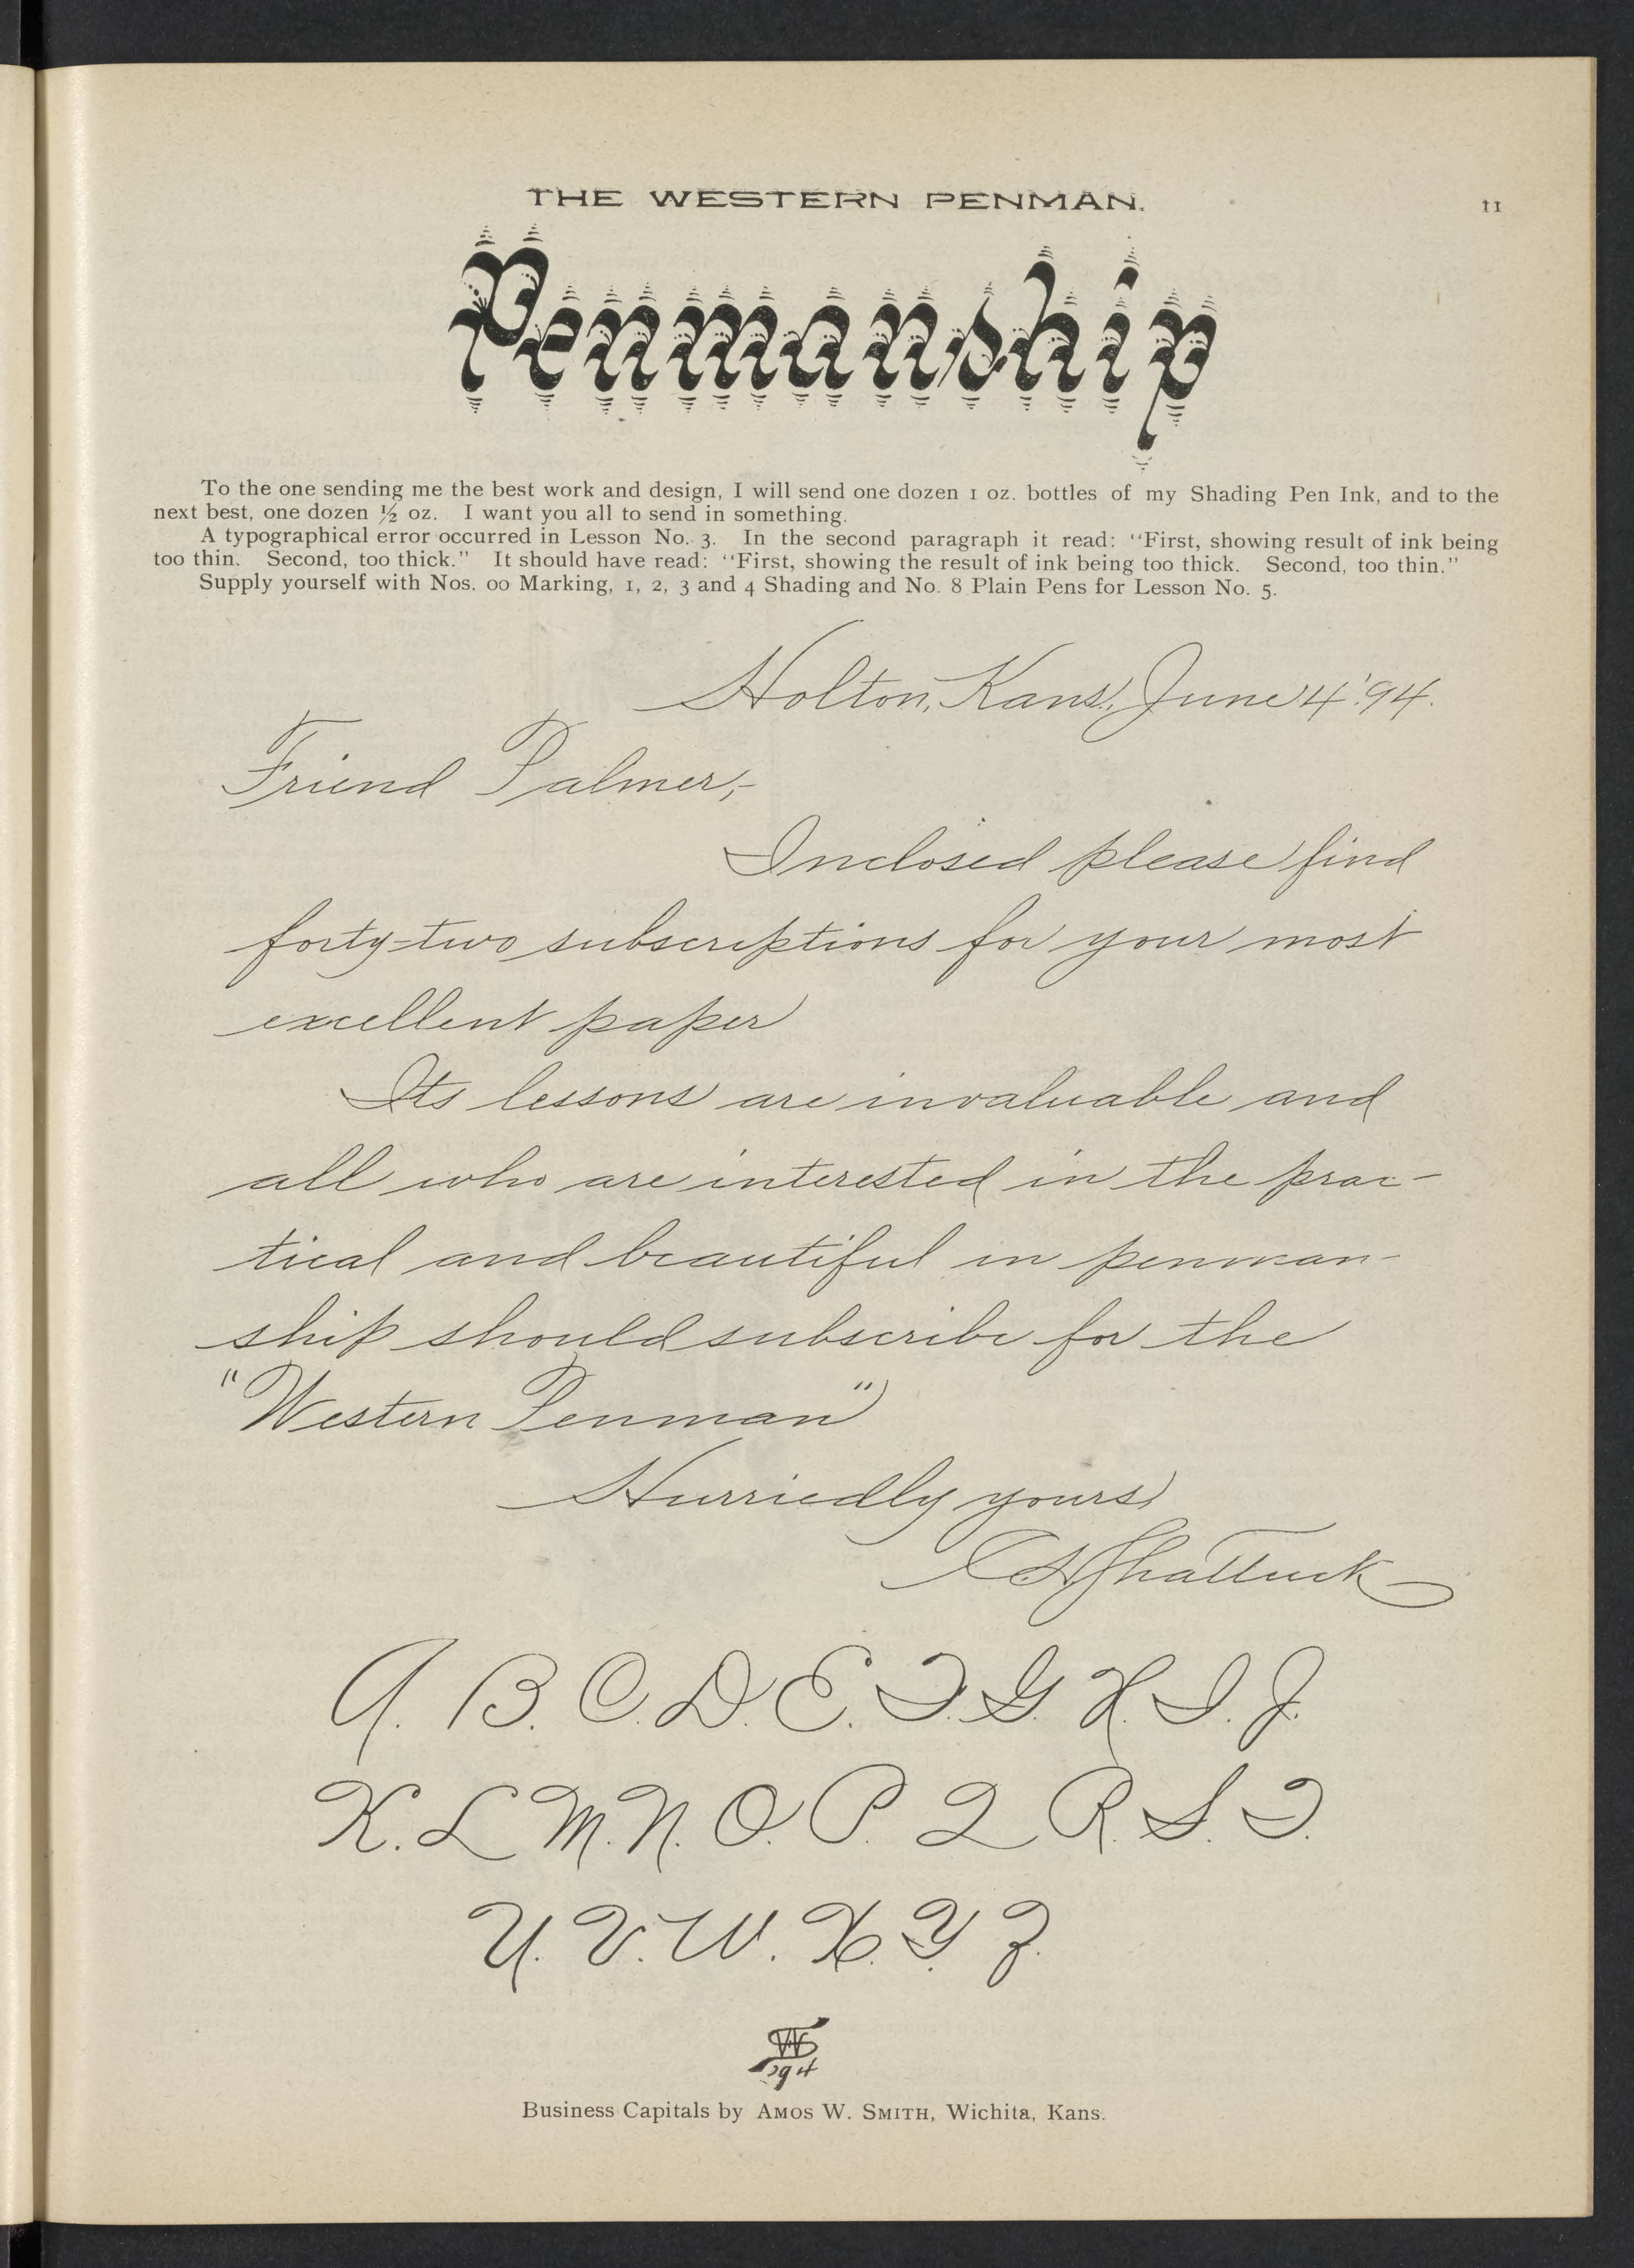 THE WESTERN PENMAN.
11
Penmanship
To the one sending me the best work and design, I will send one dozen 1 oz. bottles of my Shading Pen Ink, and to the
next best, one dozen ½ oz. I want you all to send in something.
A typographical error occurred in Lesson No. 3. In the second paragraph it read: "First, showing result of ink being
too thin. Second, too thick." It should have read: "First, showing the result of ink being too thick. Second, too thin."
Supply yourself with Nos. 00 Marking, 1, 2, 3 and 4 Shading and No. 8 Plain Pens for Lesson No. 5.
Holton, Kans., June 4 '94.
Friend Palmer,-
Inclosed please find
forty-two subscriptions for your most
excellent paper
Its lessons are invaluable and
all who are interested in the prac-
tical and beautiful in penman-
ship should subscribe for the
"Western Penman"
Hurriedly yours
Shattuck
A. B. C. D. E. F. G. H. I. J.
K. L M. N. O. P. Q R. S. T.
U. V. W. X. Y. Z.
94
Business Capitals by AMOS W. SMITH, Wichita, Kans.